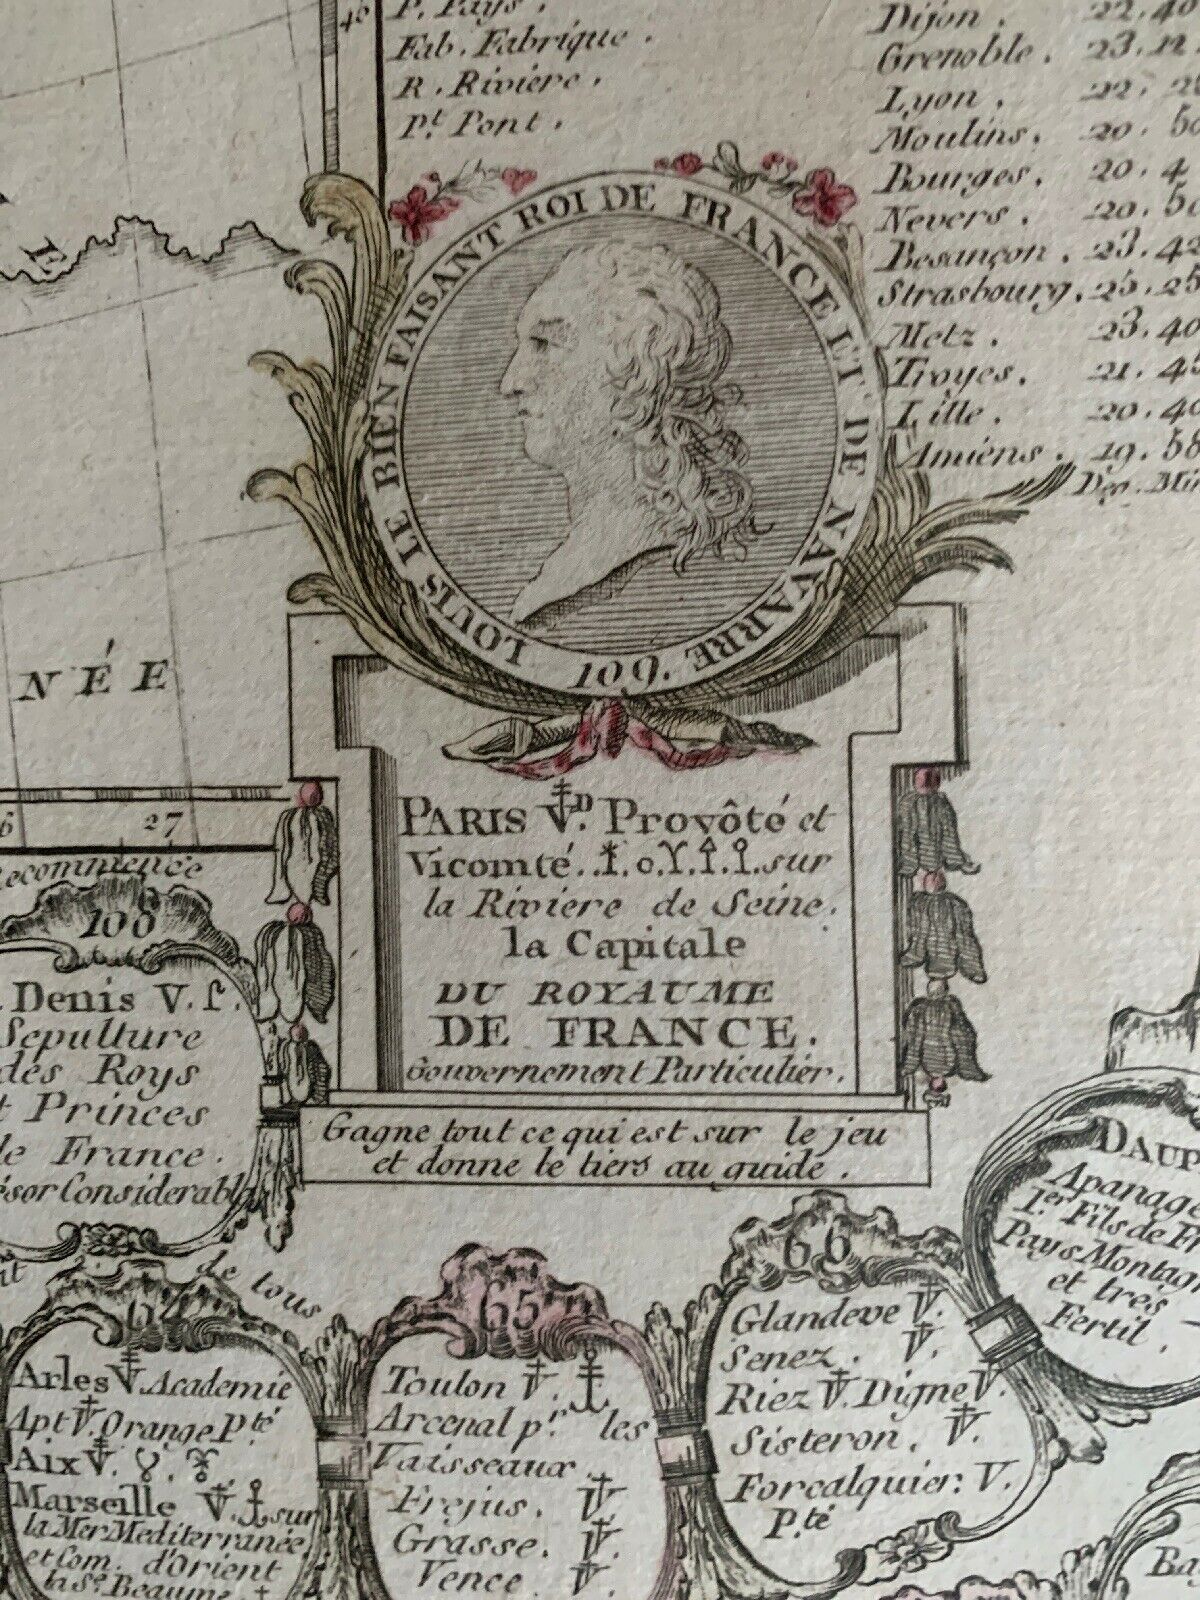 P. Pays.
Fab. Fabrique.
R. Riviere.
Pt. Pont.
Dijon. 22. 40
Grenoble. 23. 12
Lyon. 22.
Moulins. 20. 50
Bourges. 20. 4
Nevers. 20. 50
Besançon. 23. 42
Strasbourg. 25. 25
Metz. 23. 40
Troyes. 21. 45
Lille. 20. 40
Amiens. 19. 58
Deg. Min
40
LOUIS LE BIEN FAISANT ROI DE FRANCE ET DE NAVARRE
109.
NÉE
6 27
PARIS V.D Provôté et
Vicomté. sur
la Riviere de Seine.
la Capitale
DU ROYAUME
DE FRANCE.
Gouvernement Particulier.
Gagne tout ce qui est sur le jeu
et donne le tiers au guide.
Recommence
108
Denis V. f.
Sepulture
des Roys
et Princes
de France.
Trésor Considerable
de tous
64
Arles V. Academie
Apt V. Orange P.té
Aix V.
Marseille V. sur
la Mer Mediterranée
et Com. d'Orient
la Se. Beaume
65
Toulon V.
Arcenal pr. les
Vaisseaux
Frejus. V.
Grasse. V.
Vence. V.
66
Glandeve V.
Senez. V.
Riez V. Digne V.
Sisteron. V.
Forcalquier. V.
P.té
DAUP
Apanage
1.er Fils de Fr
Pays Montag
et tres
Fertil.
Ba